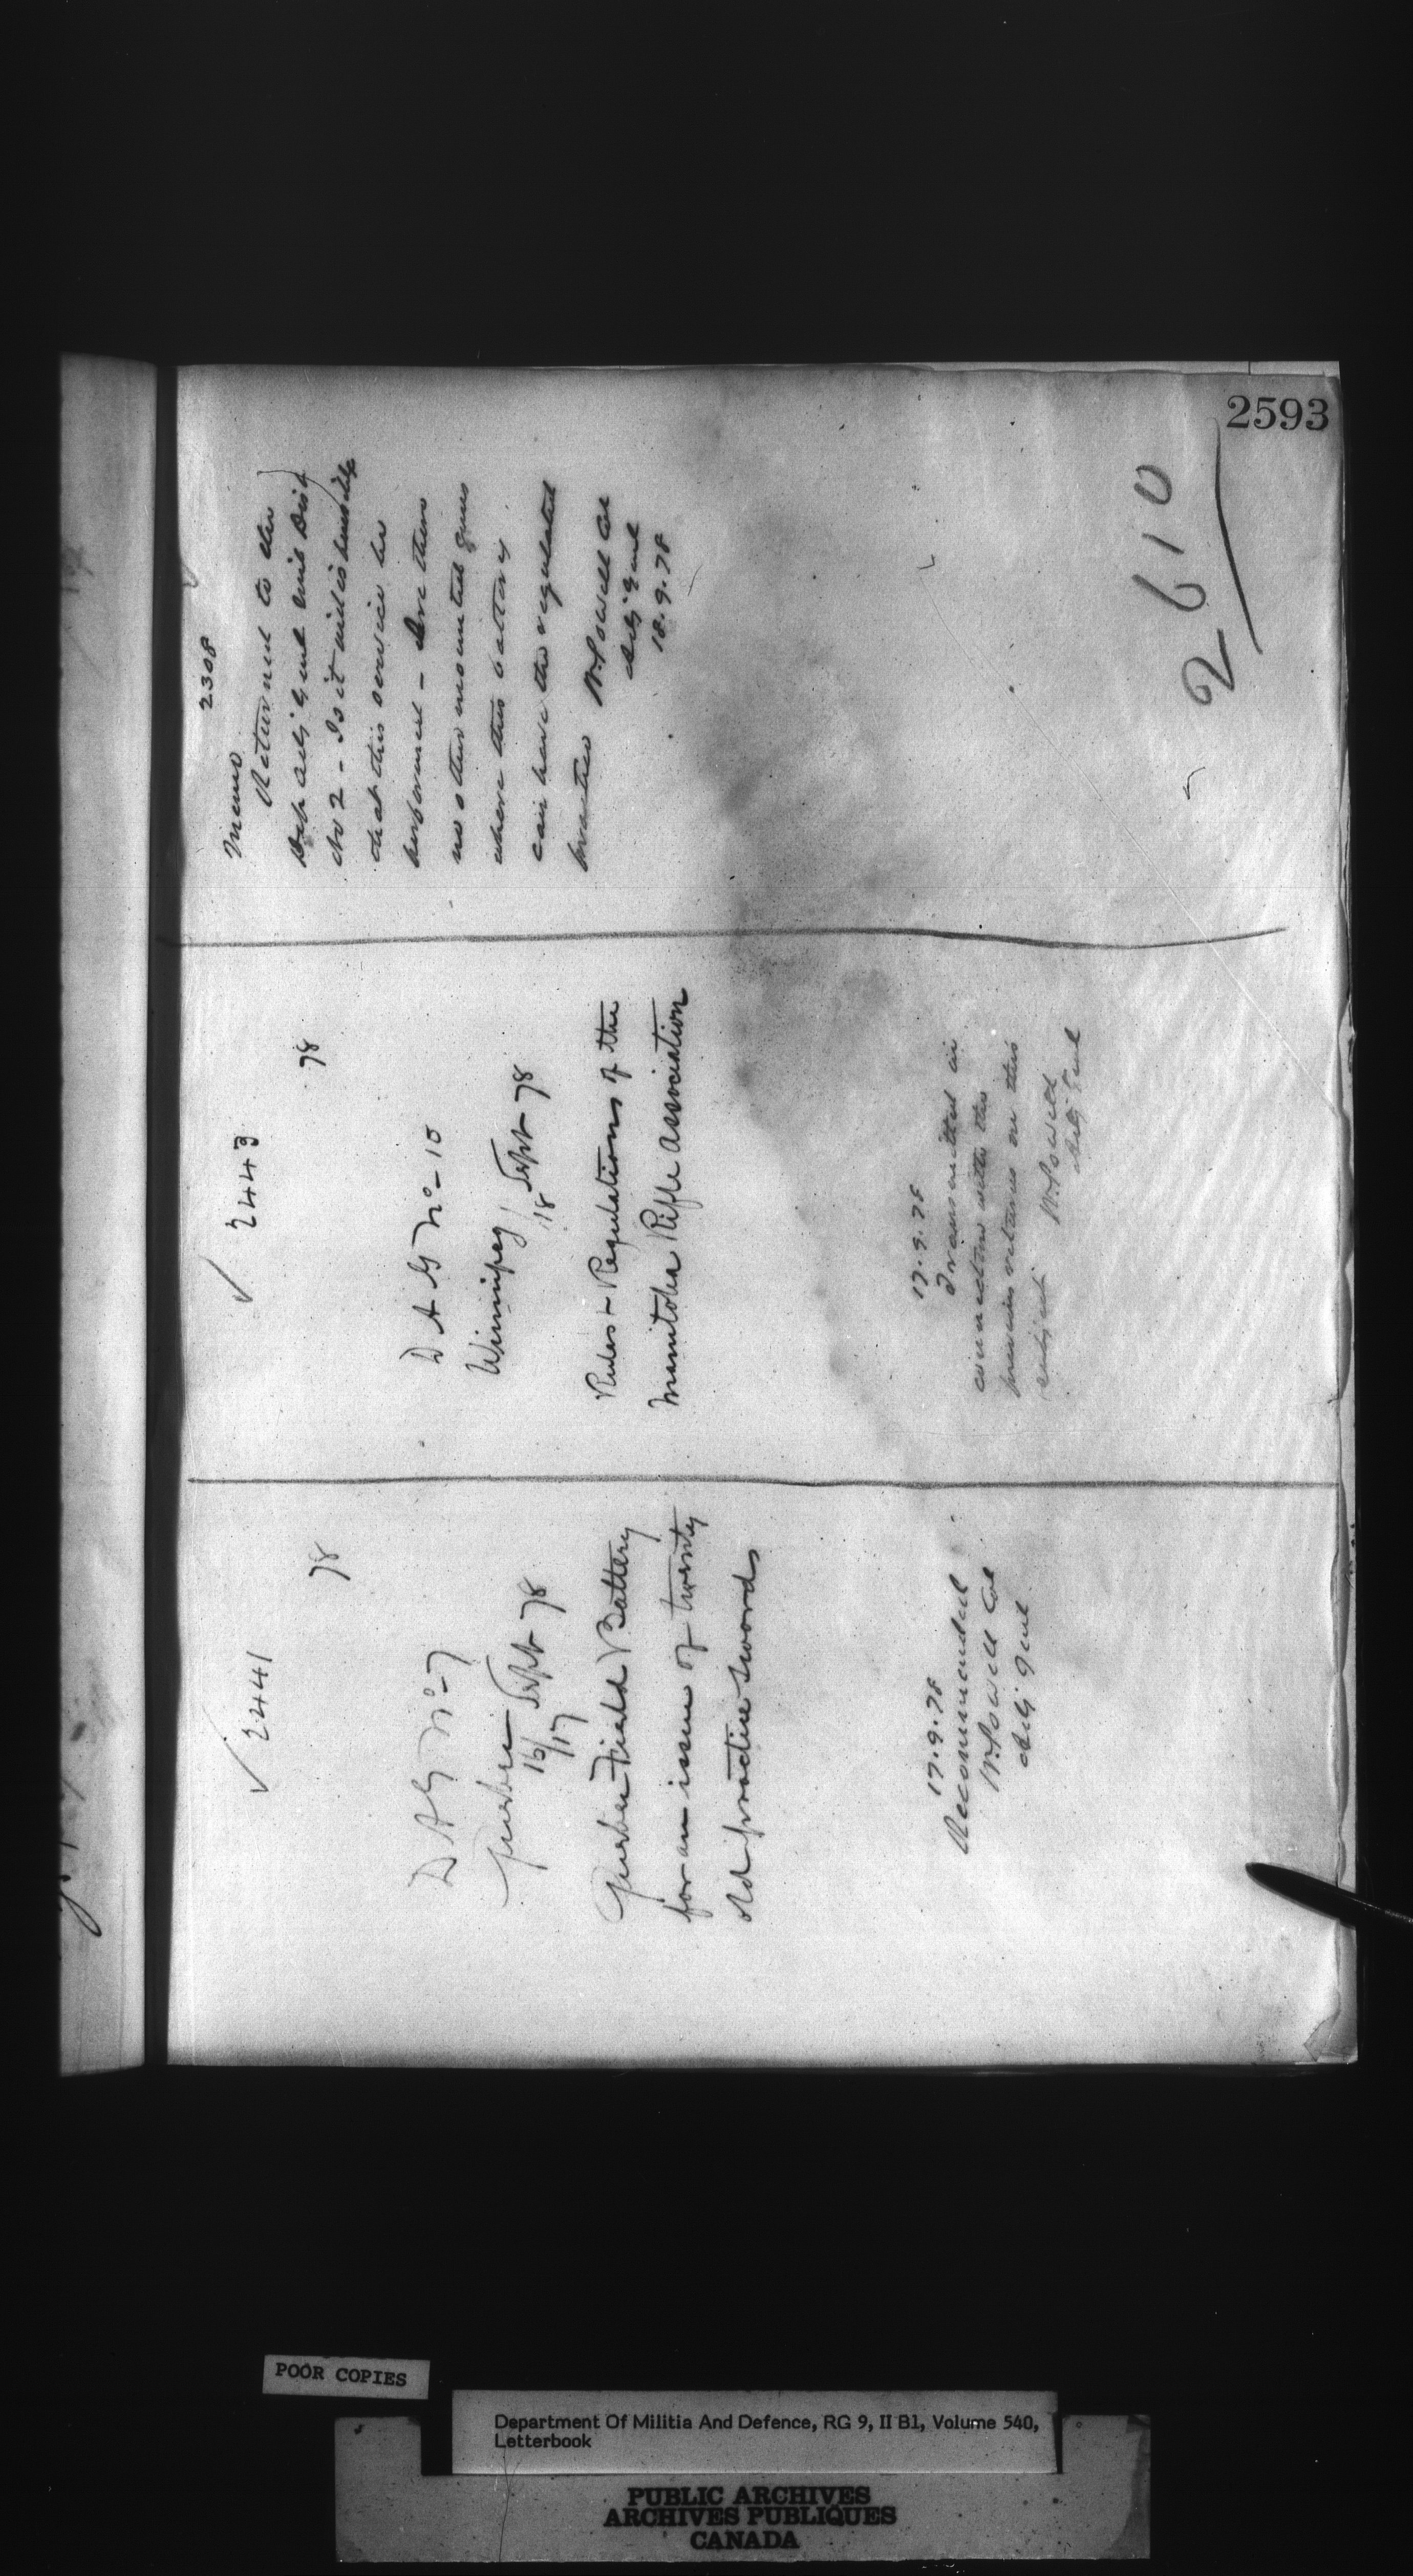 2593
2610
✓ 2441
78
D A G No- 7
Quebec
16/17 Sept 78
Quebec Field Battery
for an issue of twenty
old practice swords
17.9.78
Recommended
W. Powell Col
Adj Genl
✓ 2443
78
D A G No- 10
Winnipeg
18 Sept 78
Rules & Regulations of the
Manitoba Rifle Association
17.9.78
Transmitted in
connection with the
previous returns on this
subject
W. Powell
Adj Genl
2308
Memo
Returned to the
Dep Adj Genl Mil Dist
No 2 - Is it
that this service be
performed - Are there
no other mounted guns
where this battery
can have the requested
practice
W. Powell Col
Adj Genl
18.9.78
POOR COPIES
Department Of Militia And Defence, RG 9, II B1, Volume 540,
Letterbook
PUBLIC ARCHIVES
ARCHIVES PUBLIQUES
CANADA